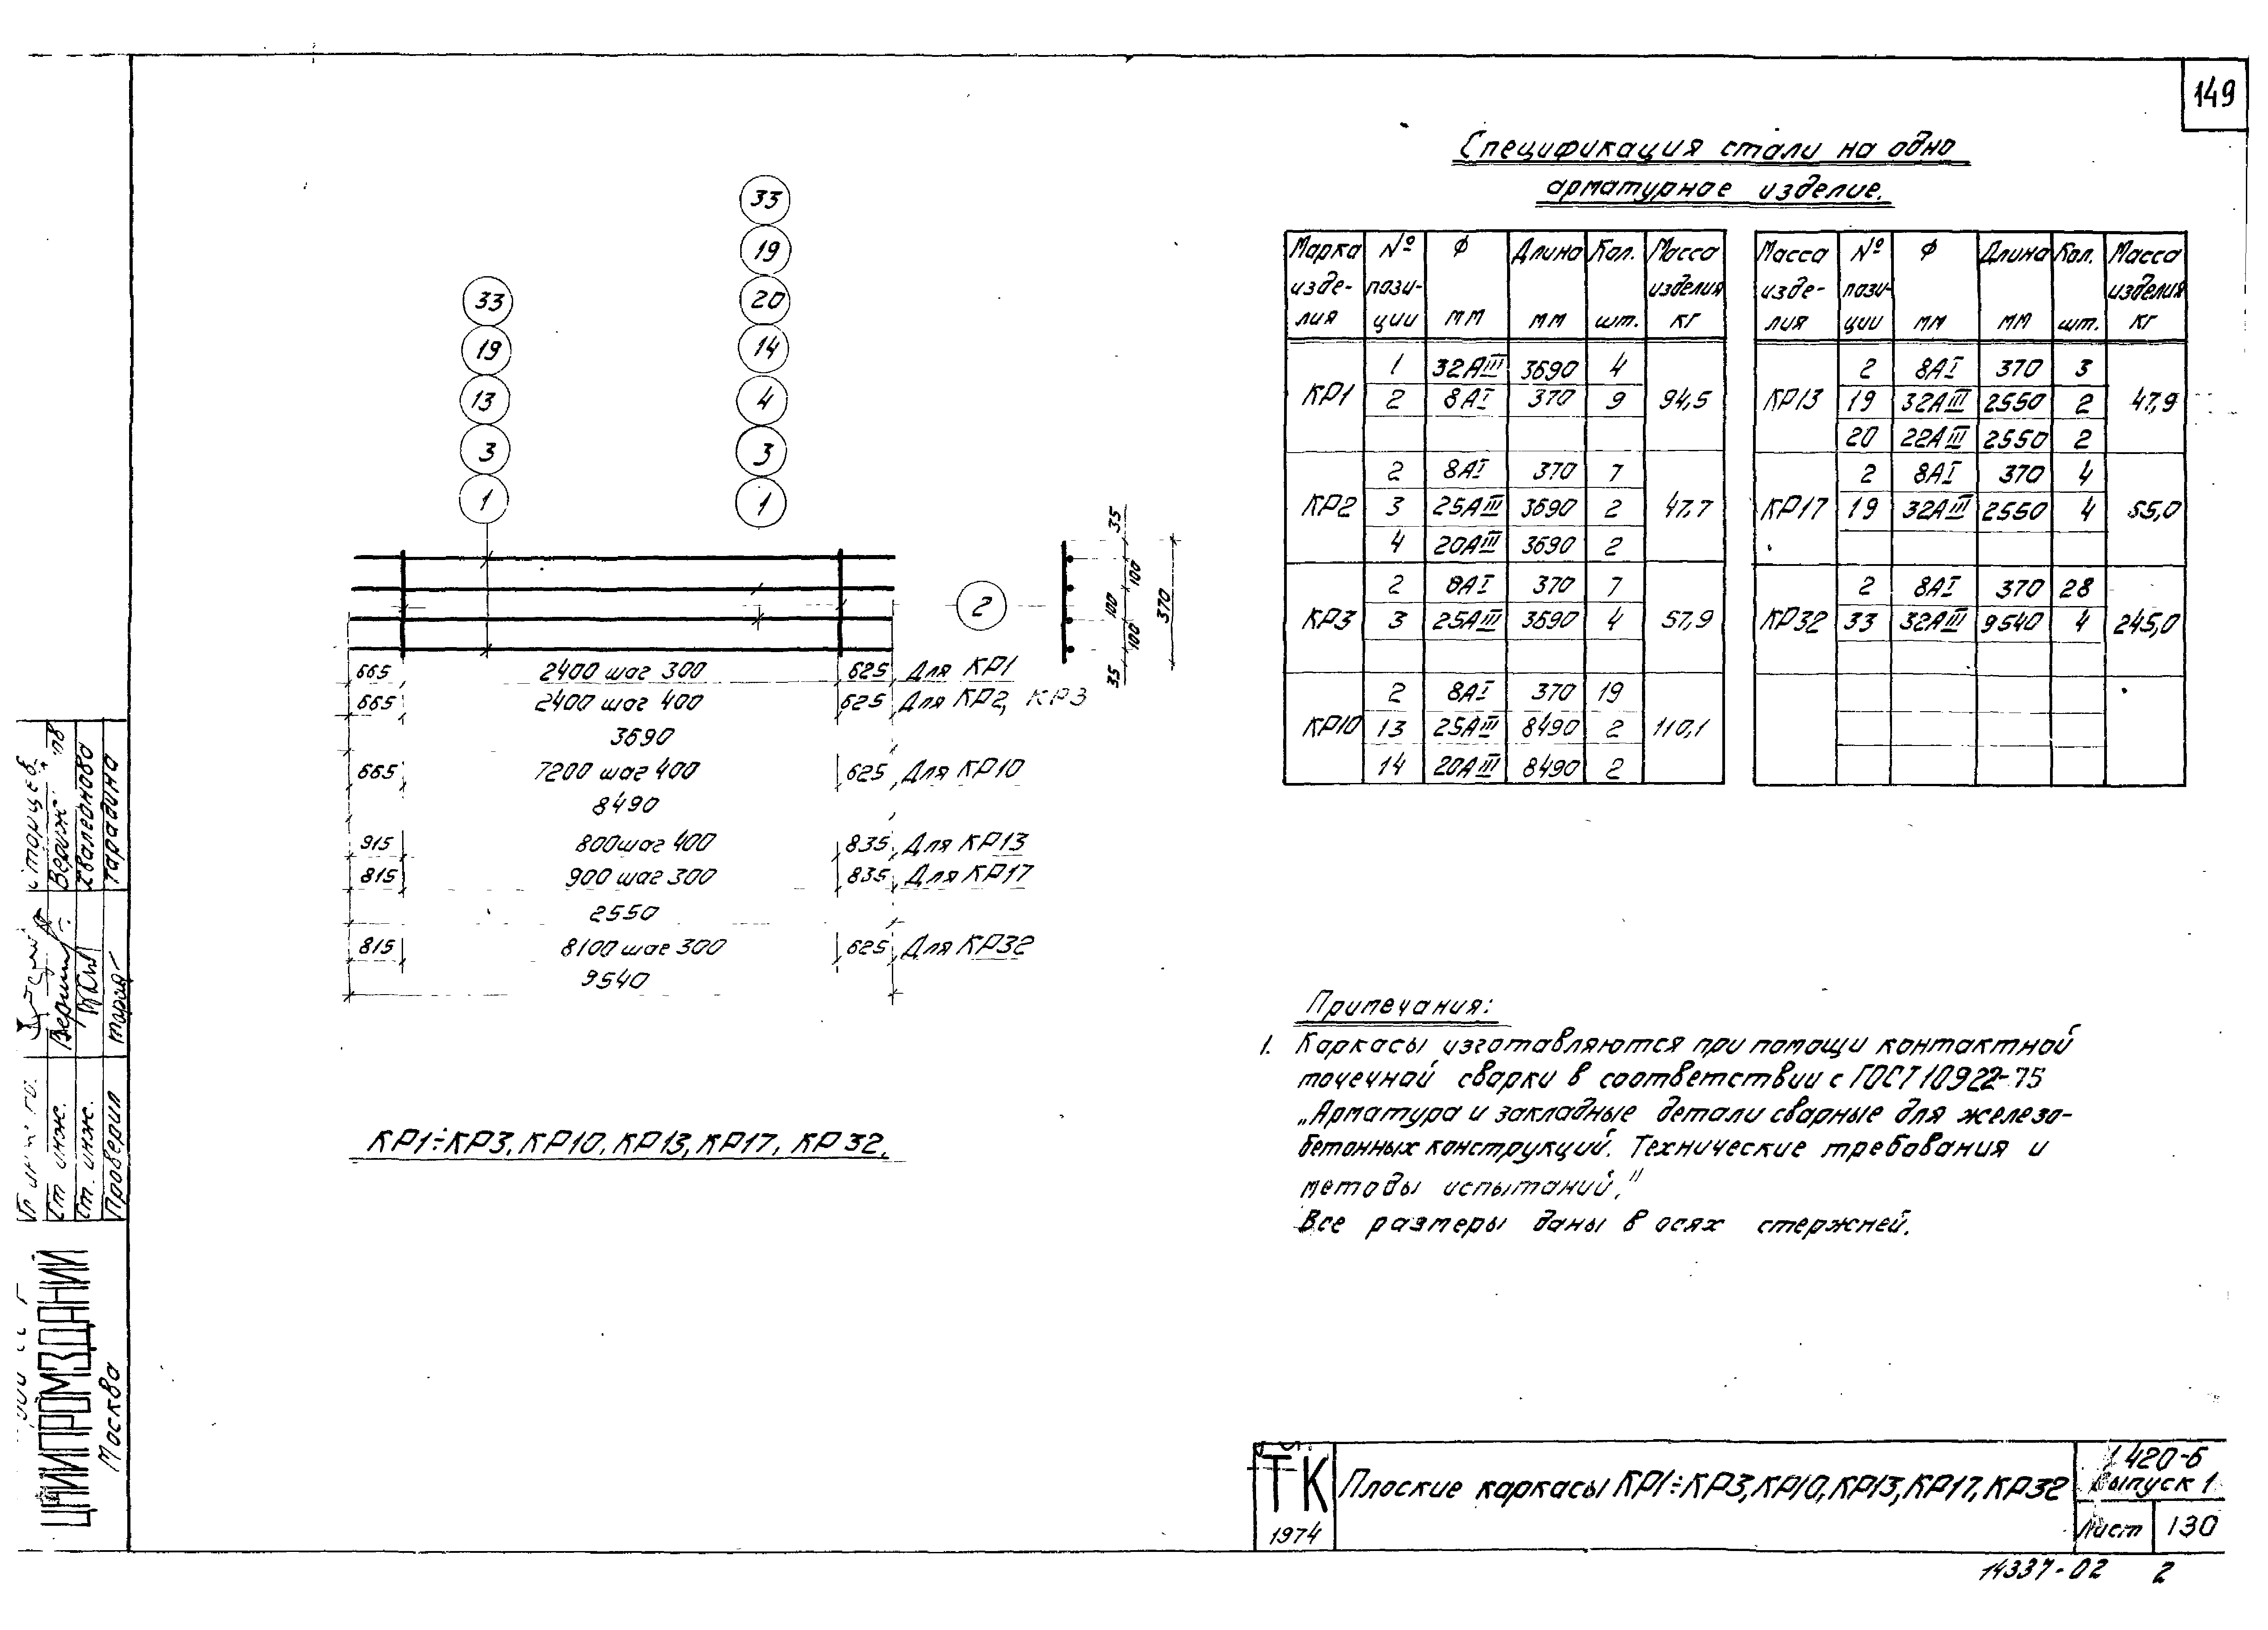 149
Спецификация стали на одно
арматурное изделие.
Марка изде-лия | № пози-ции | Ф мм | Длина мм | Кол. шт. | Масса изделия кг
КР1 | 1 | 32АIII | 3690 | 4 | 94,5
2 | 8АI | 370 | 9
КР2 | 2 | 8АI | 370 | 7 | 47,7
3 | 25АIII | 3690 | 2
4 | 20АIII | 3690 | 2
КР3 | 2 | 8АI | 370 | 7 | 57,9
3 | 25АIII | 3690 | 4
КР10 | 2 | 8АI | 370 | 19 | 110,1
13 | 25АIII | 8490 | 2
14 | 20АIII | 8490 | 2
Масса изде-лия | № пози-ции | Ф мм | Длина мм | Кол. шт. | Масса изделия кг
КР13 | 2 | 8АI | 370 | 3 | 47,9
19 | 32АIII | 2550 | 2
20 | 22АIII | 2550 | 2
КР17 | 2 | 8АI | 370 | 4 | 65,0
19 | 32АIII | 2550 | 4
КР32 | 2 | 8АI | 370 | 28 | 245,0
33 | 32АIII | 9540 | 4
33
19
13
3
1
33
19
20
14
4
3
1
2
35
100
100
100
35
370
665 2400 шаг 300 625 Для КР1
665 2400 шаг 400 625 Для КР2, КР3
3690
665 7200 шаг 400 625 Для КР10
8490
915 800 шаг 400 835 Для КР13
815 900 шаг 300 835 Для КР17
2550
815 8100 шаг 300 625 Для КР32
9540
КР1÷КР3, КР10, КР13, КР17, КР32.
Примечания:
1. Каркасы изготавляются при помощи контактной
точечной сварки в соответствии с ГОСТ 10922-75
„Арматура и закладные детали сварные для железо-
бетонных конструкций. Технические требования и
методы испытаний."
Все размеры даны в осях стержней.
ТК
1974
Плоские каркасы КР1÷КР3, КР10, КР13, КР17, КР32
1.420-6
Выпуск 1
Лист 130
14337-02 2
Ст. инж.
Ст. инж. Хвалернова
Проверил Тарадина
ЦНИИПРОМЗДАНИЙ
Москва